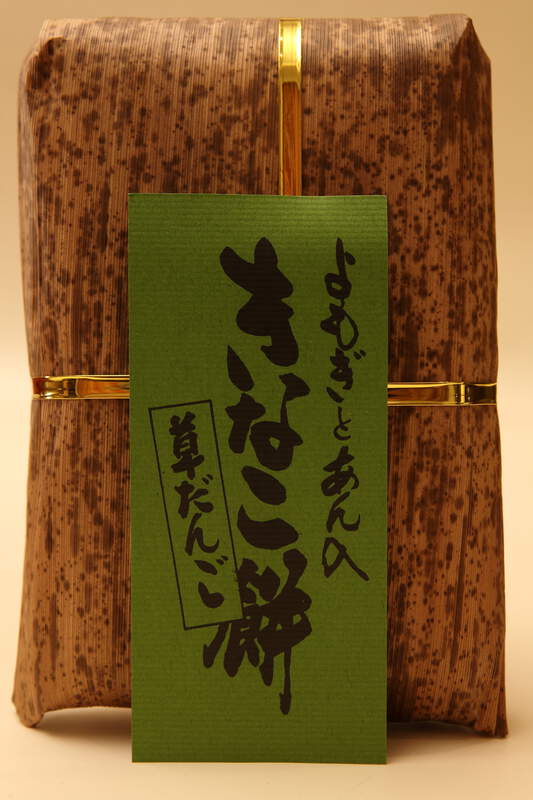 よもぎとあんの
きなこ餅
草だんご